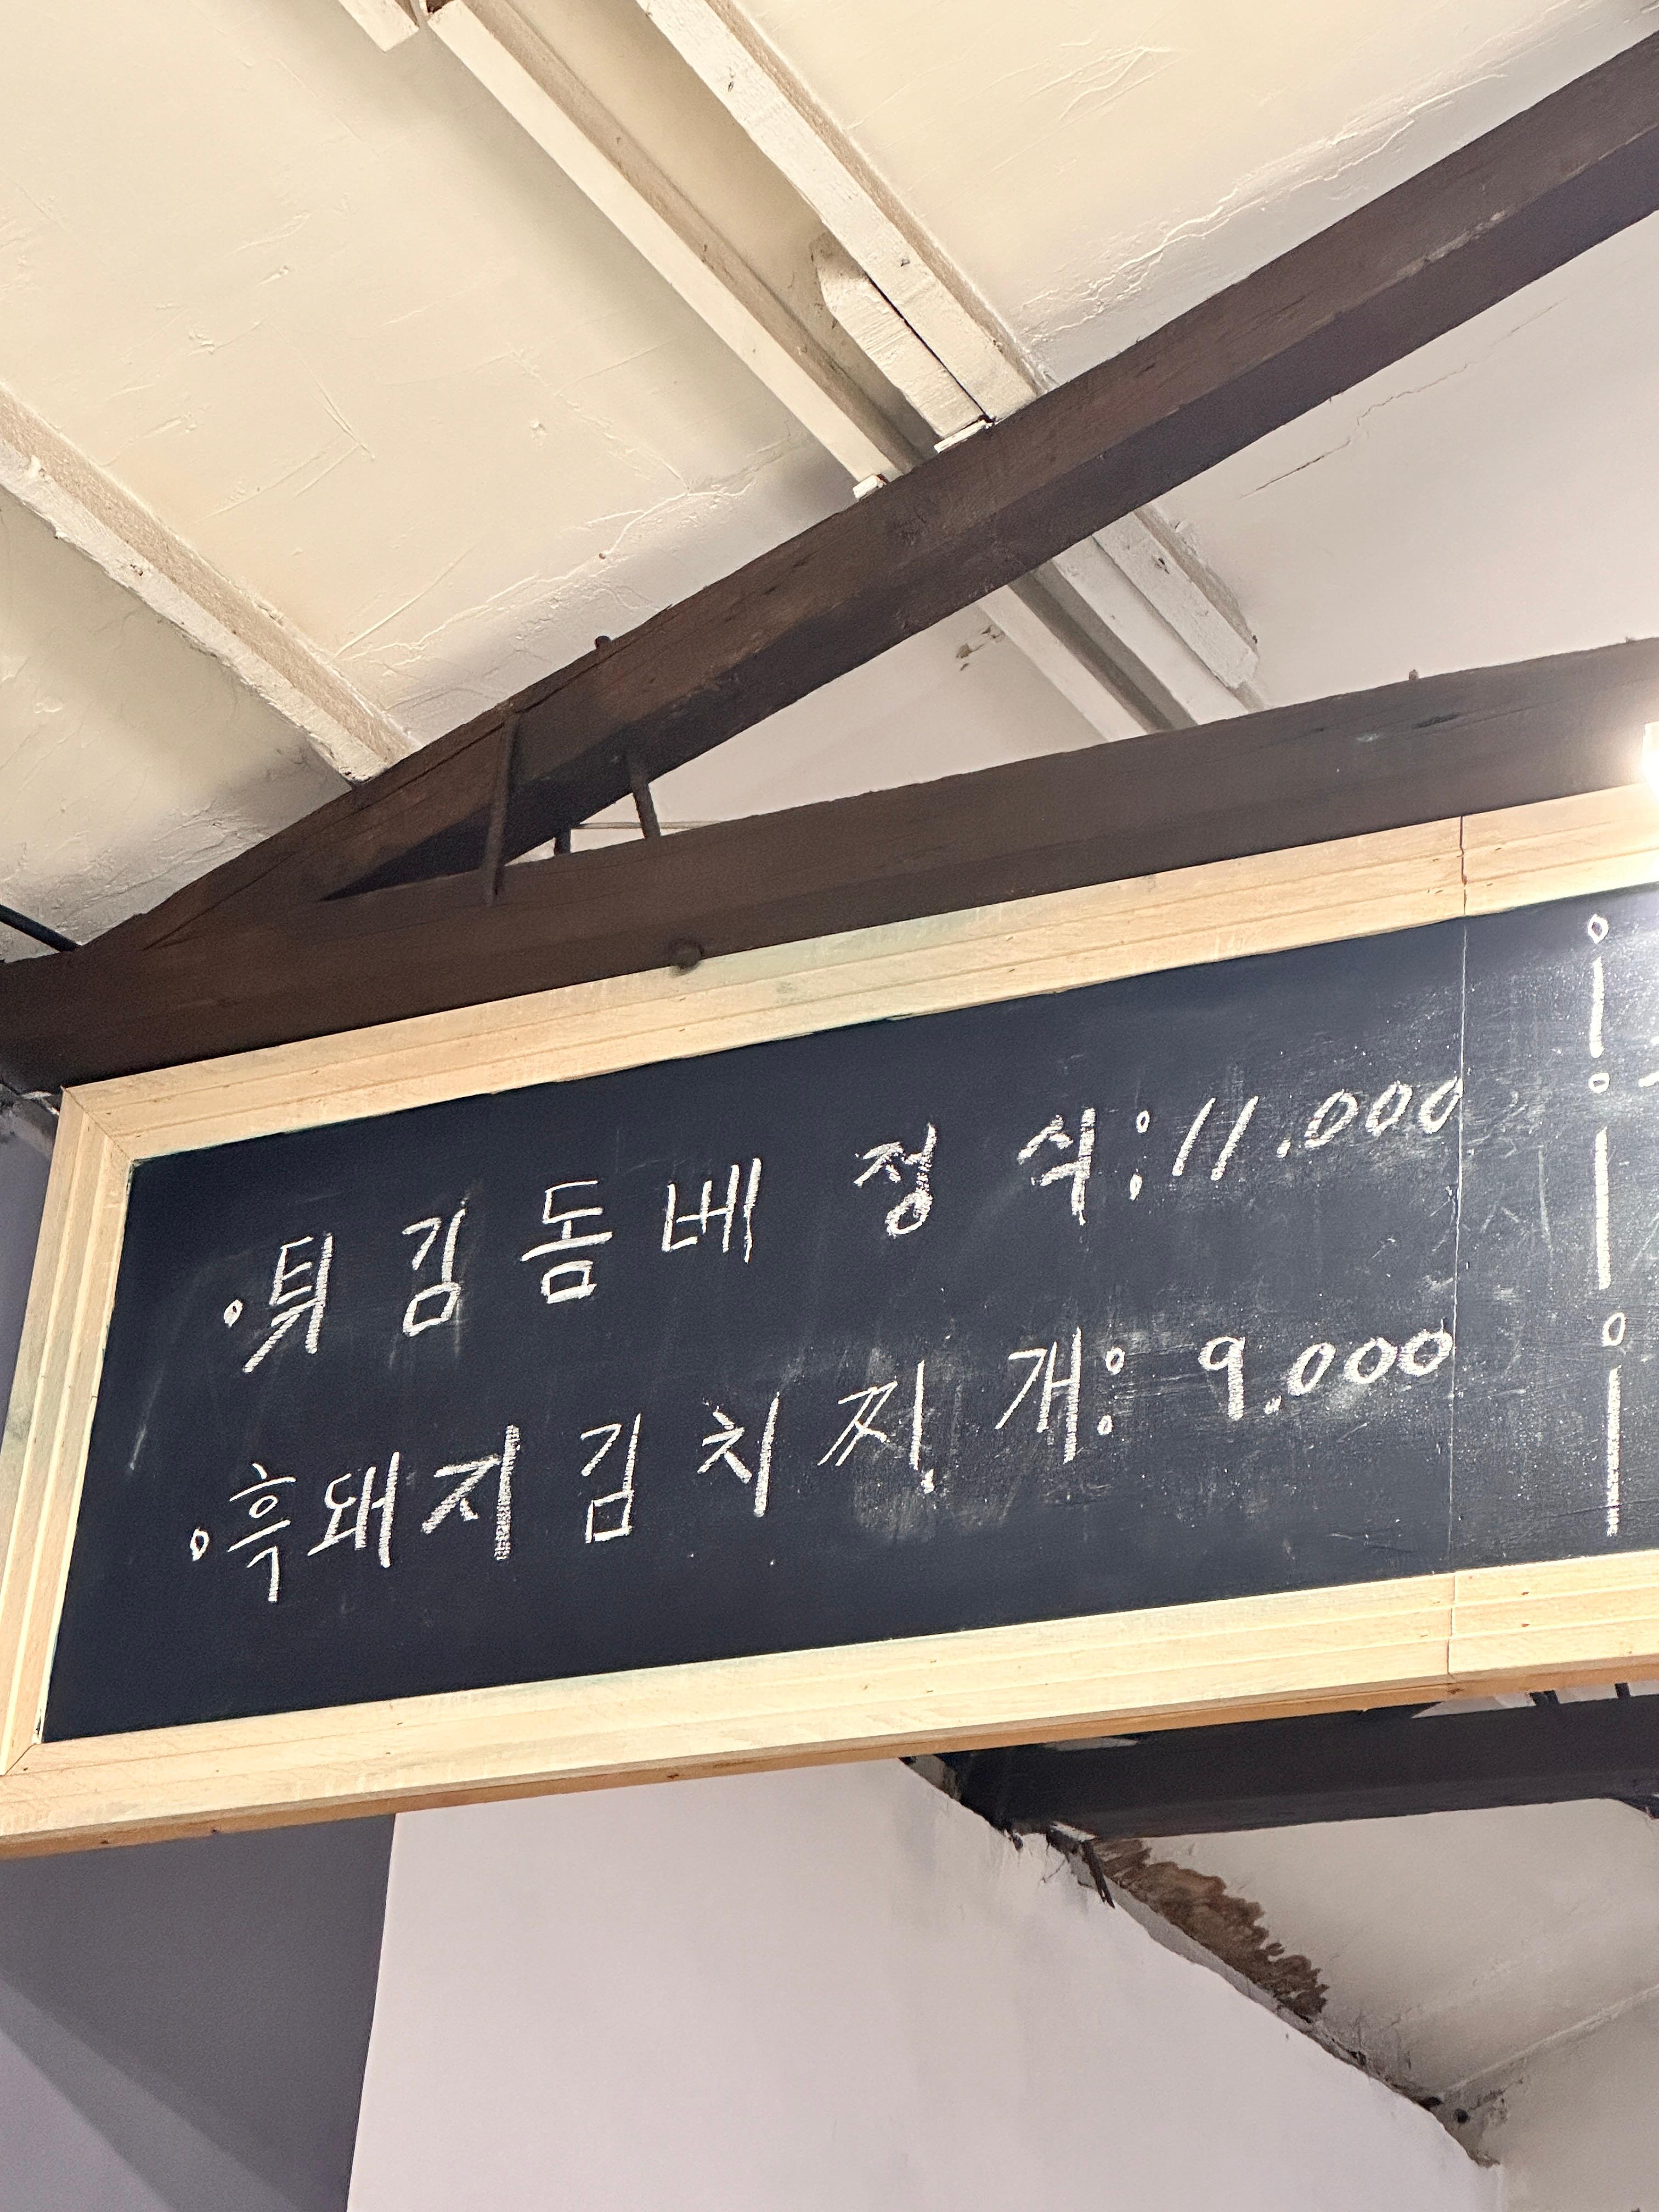 ◦튀김돔베 정식:11.000
◦흑돼지김치찌개: 9.000